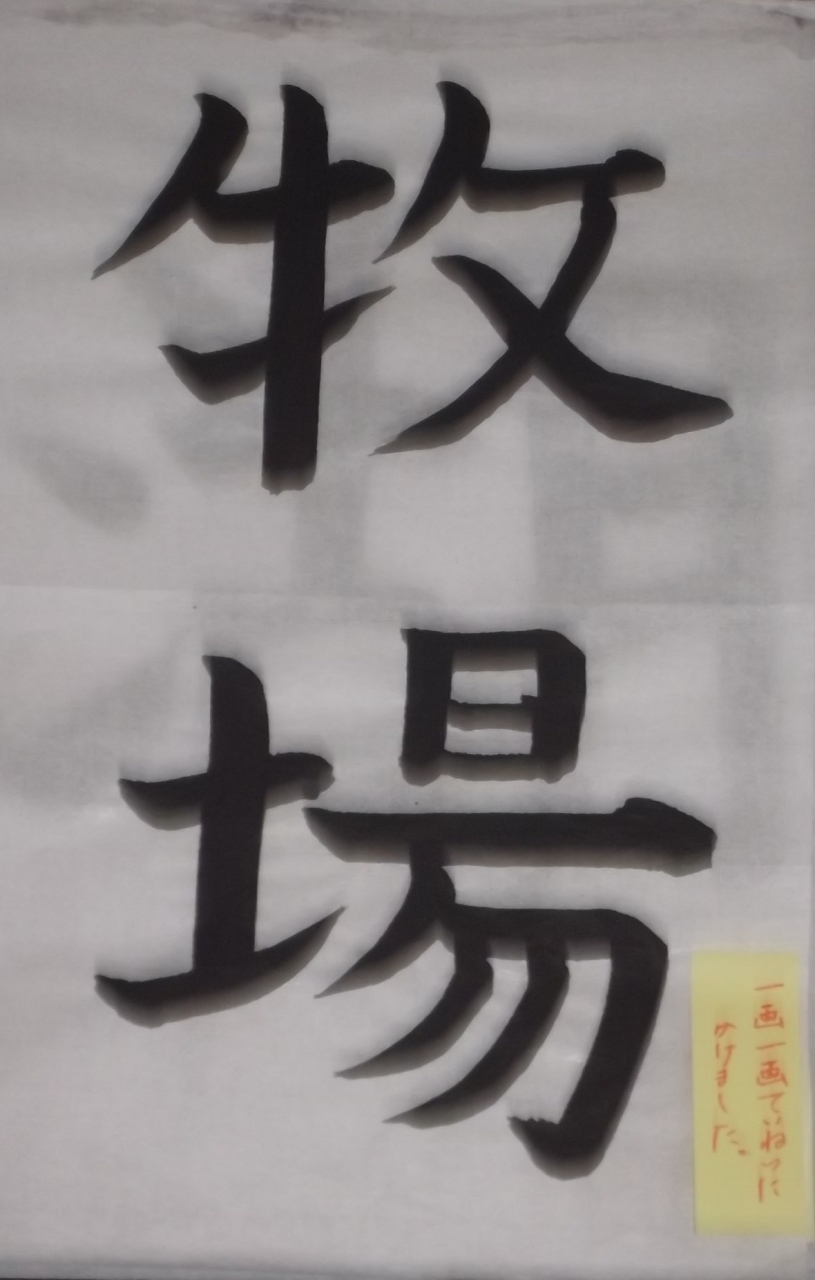 牧場
一画一画ていねいに
かけました。